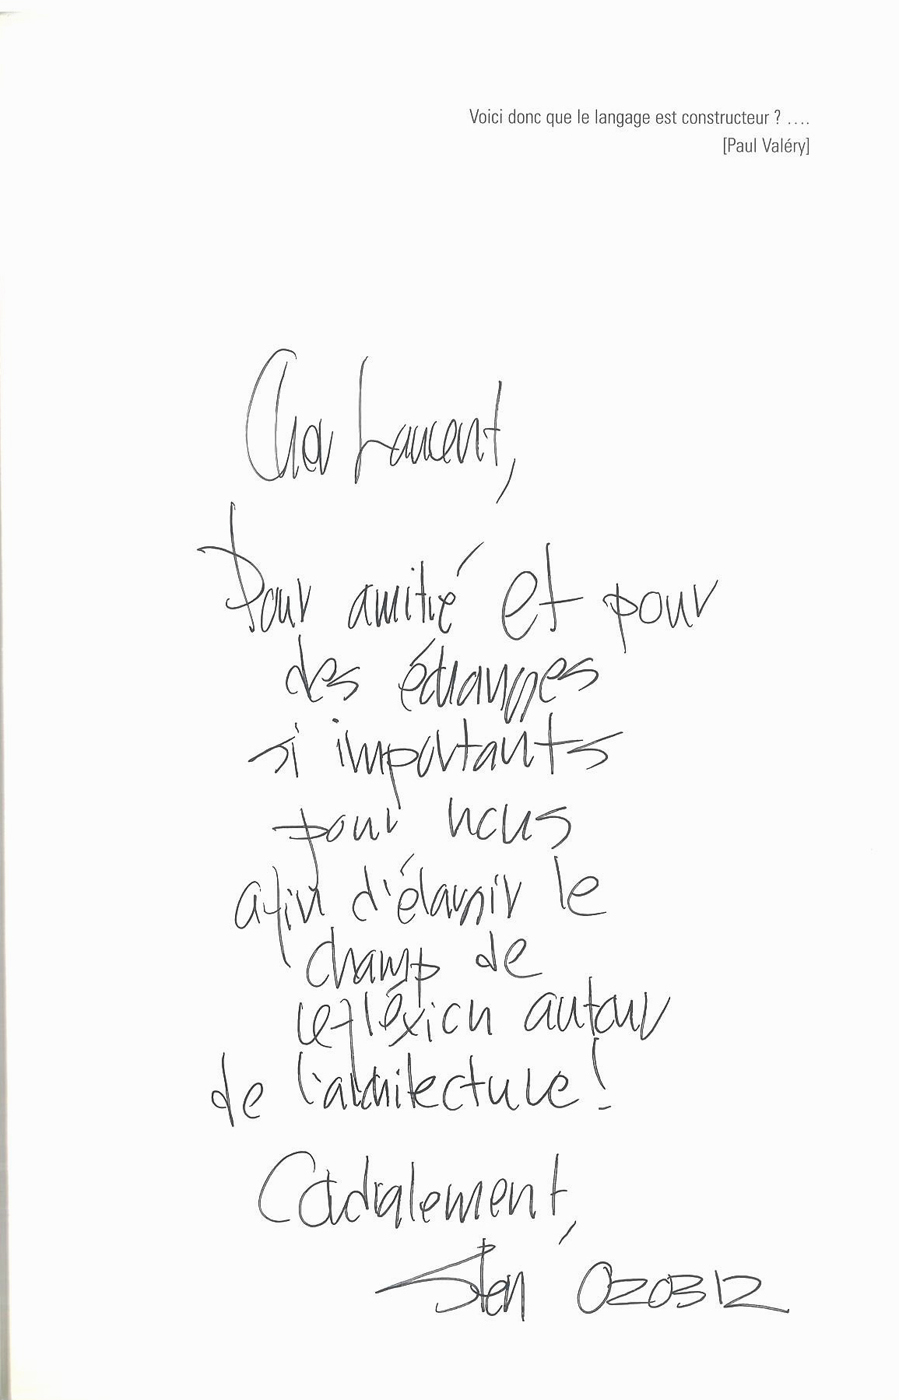 Voici donc que le langage est constructeur ? ....
[Paul Valéry]
Cher Laurent,
Pour amitié et pour
des échanges
si importants
pour nous
afin d'élargir le
champ de
refléxion autour
de l'architecture !
Cordialement,
Sten 020312